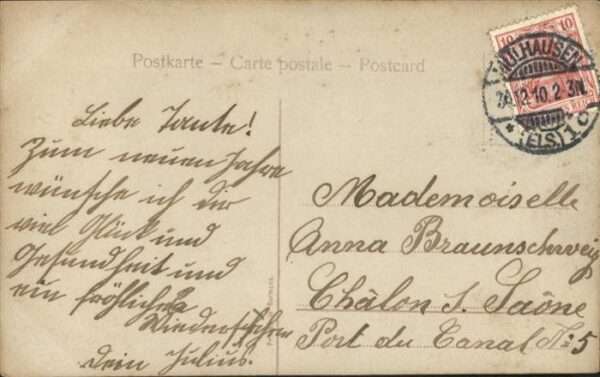 Postkarte – Carte postale – Postcard
10 10
MÜLHAUSEN
12.10.2-3N.
* (ELS) 1 c
Liebe Tante!
Zum neuen Jahre
wünsche ich dir
viel Glück und
Gesundheit und
ein fröhliches
Wiedersehen
Dein Julius.
Mademoiselle
Anna Braunschweig
Châlon s. Saône
Port du Canal No 5